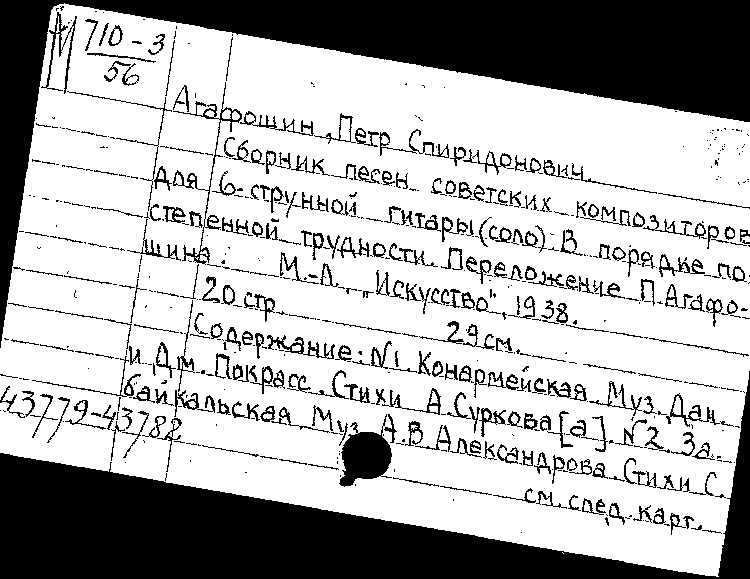 М 710-3
56
Агафошин, Петр Спиридонович.
Сборник песен советских композиторов
для 6-струнной гитары (соло). В порядке по-
степенной трудности. Переложение П. Агафо-
шина. М.-Л., "Искусство", 1938.
20 стр. 29 см.
Содержание: №1. Конармейская. Муз. Дан.
и Дм. Покрасс. Стихи А. Суркова [а]. №2. За-
байкальская. Муз. А.В. Александрова. Стихи С.
43779-43782
см. след. карт.